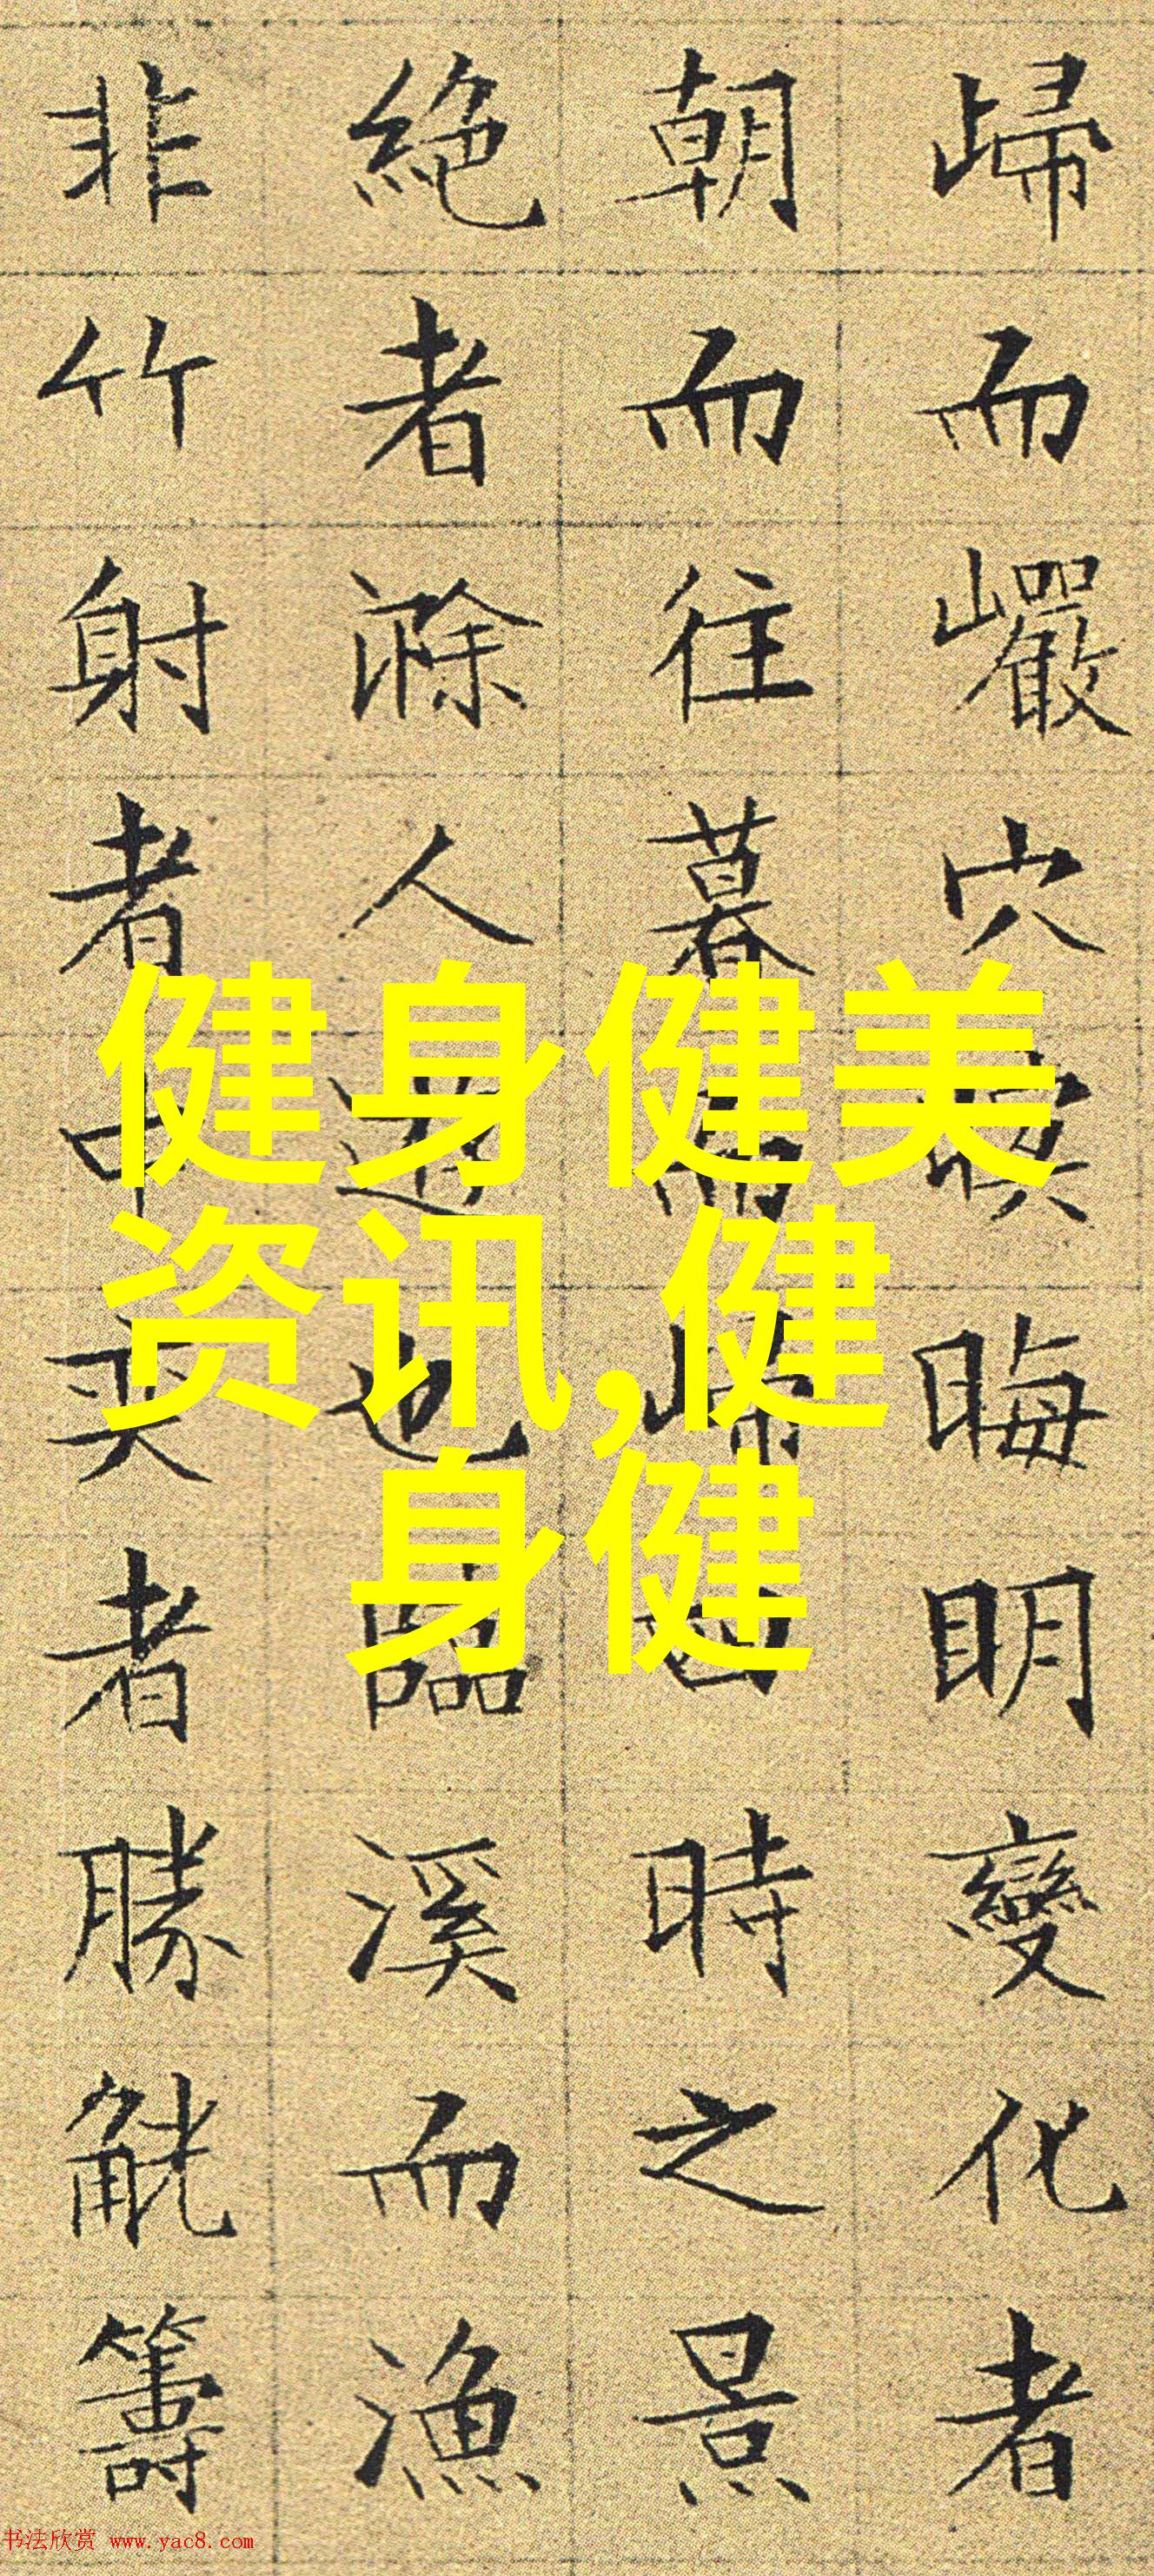 歸而巖穴暝晦明變化者
朝而往暮而歸四時之景
絶者滁人遊也臨溪而漁
非竹射者中奕者勝觥籌
健身健美
资讯,健
身健
书法欣赏 www.yac8.com